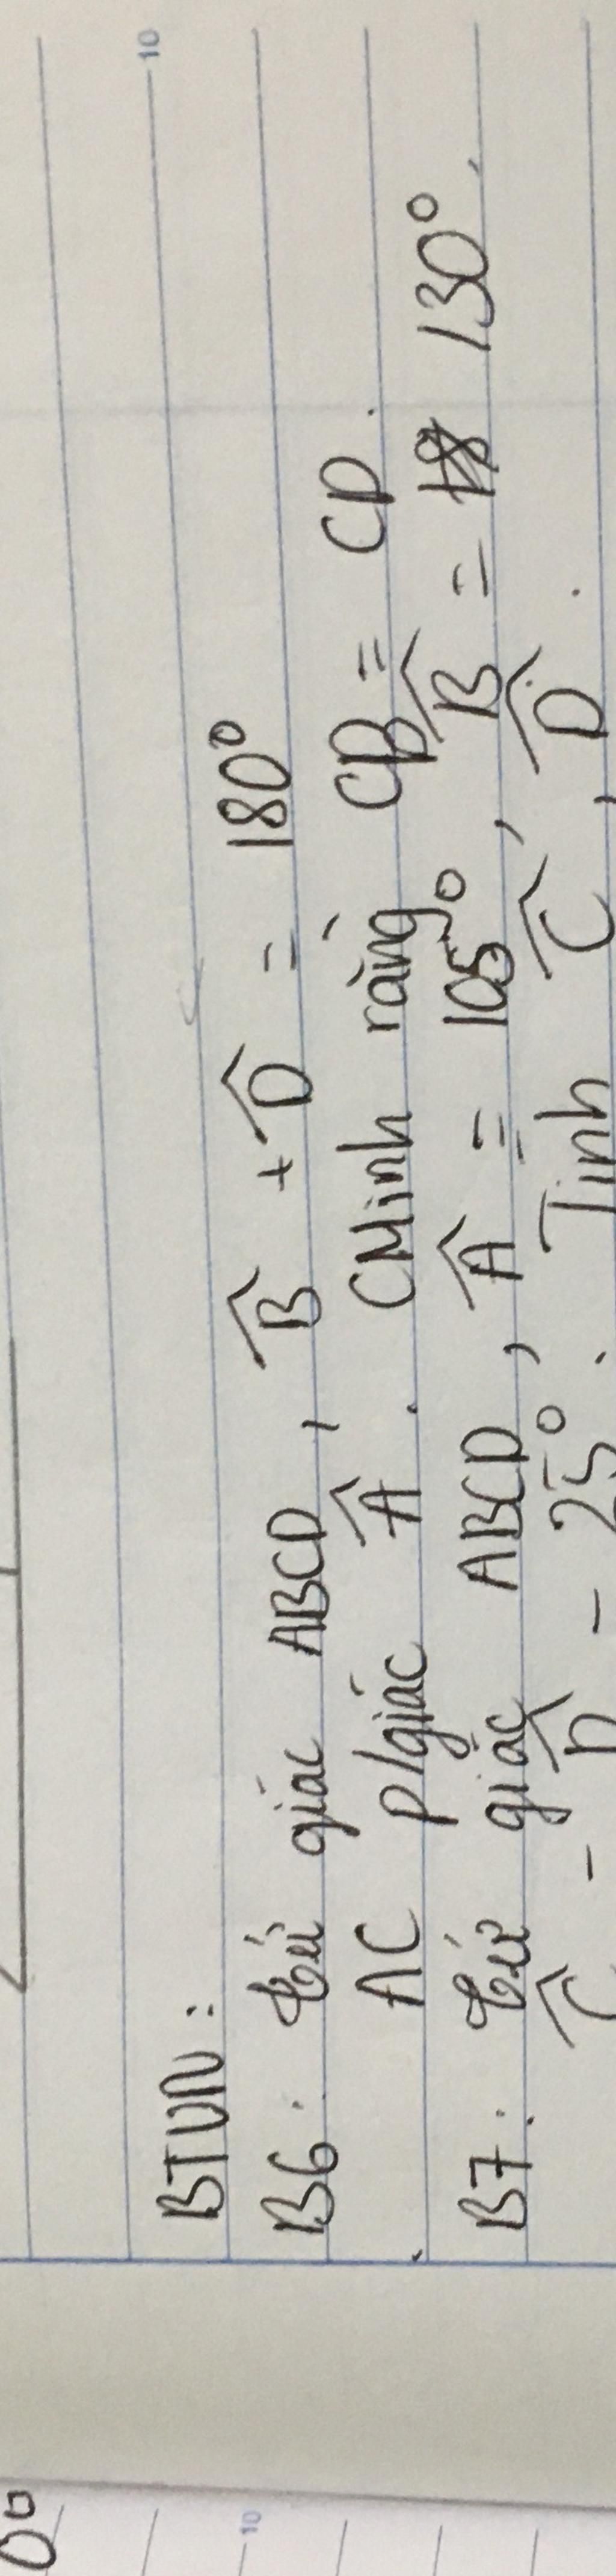 BTVN:
B6. tứ giác ABCD, B̂ + D̂ = 180°
AC p/giác Â. CMinh rằng CB = CD.
B7. tứ giác ABCD, Â = 105°, B̂ = 130°.
Ĉ - D̂ = 25°. Tính Ĉ, D̂.
10
10
0°